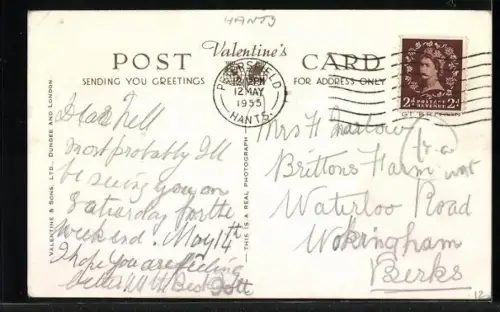 HANTS
POST Valentine's CARD
SENDING YOU GREETINGS
FOR ADDRESS ONLY
PETERSFIELD
12 MAY
1955
HANTS.
2d POSTAGE REVENUE 2d
VALENTINE & SONS, LTD., DUNDEE AND LONDON
THIS IS A REAL PHOTOGRAPH
Dear Nell
most probably Ill
be seeing you on
Saturday for the
weekend. May 14th
I hope You are feeling
better
Mrs H
Brittons Farm
Waterloo Road
Wokingham
Berks
12